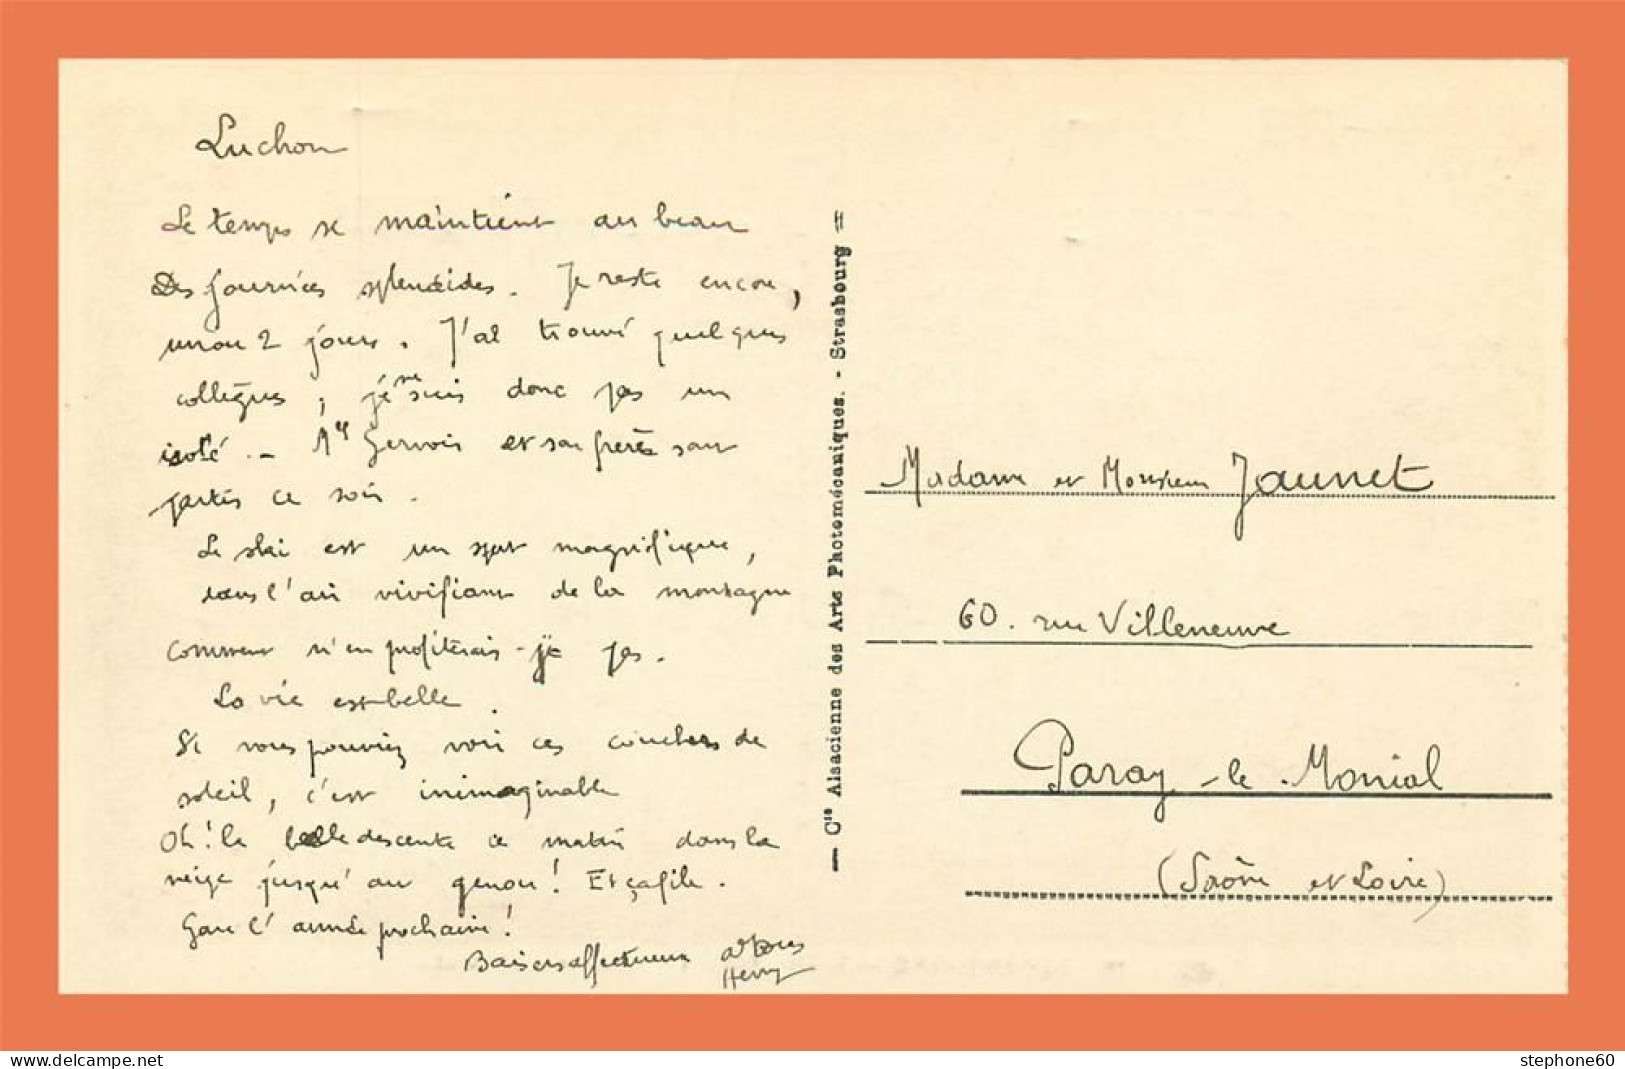 Luchon
Le temps se maintient au beau
Des journées splendides. Je reste encore,
un ou 2 jours. J'ai trouvé quelques
collègues, je ne suis donc pas un
isolé. - Gervois et son frère sont
partis ce soir.
Le ski est un sport magnifique,
dans l'air vivifiant de la montagne
comment n'en profiterais-je pas.
La vie est belle.
Si vous pouviez voir ces couchers de
soleil, c'est inimaginable
Oh! la belle descente ce matin dans la
neige jusqu'au genou! Et ça file.
Gare l'année prochaine!
Baisers affectueux à tous
Henry
— Cie Alsacienne des Arts Photomécaniques. - Strasbourg =
Madame et Monsieur Jaunet
60. rue Villeneuve
Paray-le-Monial
(Saône et Loire)
www.delcampe.net
stephone60